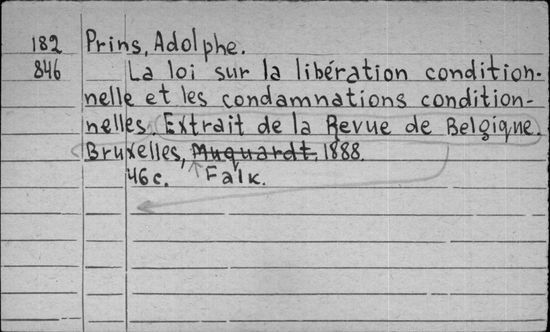 182 Prins, Adolphe.
846 La loi sur la libération condition-
nelle et les condamnations condition-
nelles. Extrait de la Revue de Belgique.
Bruxelles, Muquardt, 1888.
46 c. Falk.